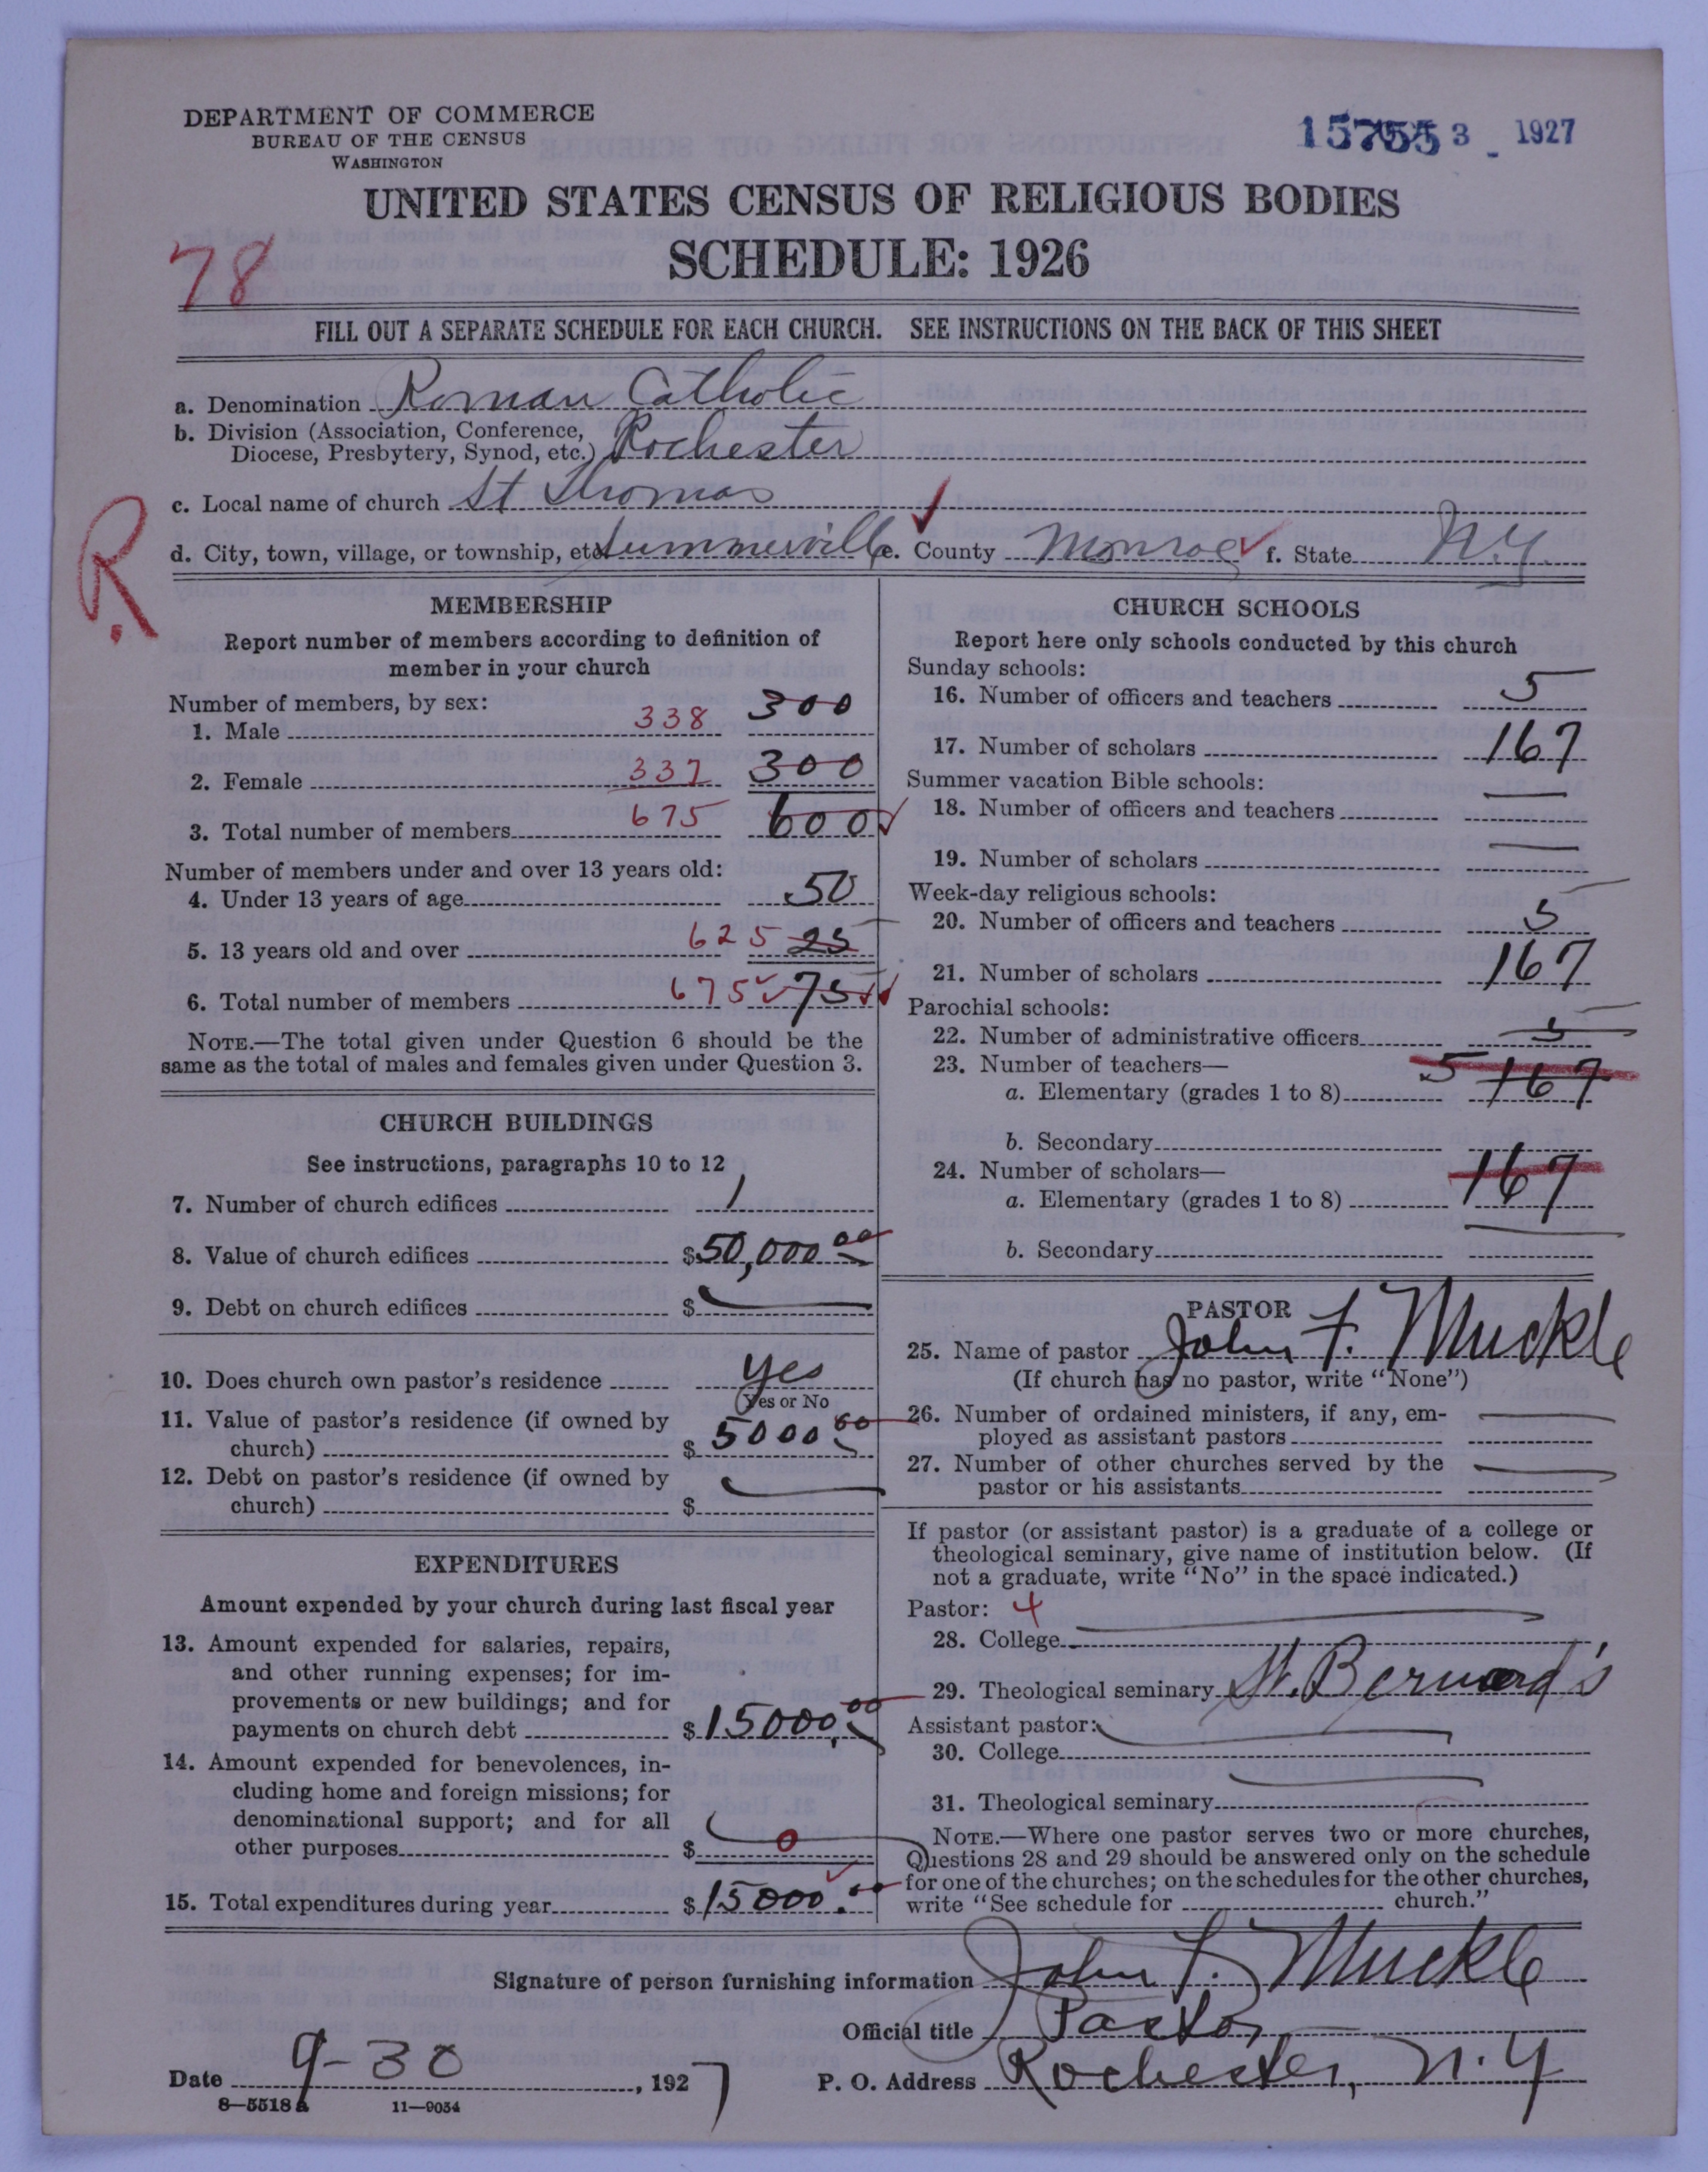 DEPARTMENT OF COMMERCE
BUREAU OF THE CENSUS
WASHINGTON
3 1927
UNITED STATES CENSUS OF RELIGIOUS BODIES
78
SCHEDULE: 1926
FILL OUT A SEPARATE SCHEDULE FOR EACH CHURCH. SEE INSTRUCTIONS ON THE BACK OF THIS SHEET
a. Denomination Roman Catholic
b. Division (Association, Conference,
Diocese, Presbytery, Synod, etc.) Rochester
R
c. Local name of church St Thomas
d. City, town, village, or township, etc. Summerville e. County Monroe f. State N.Y.
MEMBERSHIP
Report number of members according to definition of
member in your church
Number of members, by sex:
1. Male 338 300
2. Female 337 300
3. Total number of members 675 600
Number of members under and over 13 years old:
4. Under 13 years of age 50
5. 13 years old and over 625 25
6. Total number of members 675 75
NOTE.—The total given under Question 6 should be the
same as the total of males and females given under Question 3.
CHURCH BUILDINGS
See instructions, paragraphs 10 to 12
7. Number of church edifices 1
8. Value of church edifices $50,000.00
9. Debt on church edifices $ —
10. Does church own pastor's residence yes
Yes or No
11. Value of pastor's residence (if owned by
church) $ 5000.00
12. Debt on pastor's residence (if owned by
church) $ —
EXPENDITURES
Amount expended by your church during last fiscal year
13. Amount expended for salaries, repairs,
and other running expenses; for im-
provements or new buildings; and for
payments on church debt $15000.00
14. Amount expended for benevolences, in-
cluding home and foreign missions; for
denominational support; and for all
other purposes $ 0
15. Total expenditures during year $15000.00
CHURCH SCHOOLS
Report here only schools conducted by this church
Sunday schools:
16. Number of officers and teachers 5
17. Number of scholars 167
Summer vacation Bible schools:
18. Number of officers and teachers —
19. Number of scholars —
Week-day religious schools:
20. Number of officers and teachers 5
21. Number of scholars 167
Parochial schools:
22. Number of administrative officers 5
23. Number of teachers—
a. Elementary (grades 1 to 8) 5 167
b. Secondary
24. Number of scholars—
a. Elementary (grades 1 to 8) 167
b. Secondary
PASTOR
25. Name of pastor John F. Muckle
(If church has no pastor, write "None")
26. Number of ordained ministers, if any, em-
ployed as assistant pastors —
27. Number of other churches served by the
pastor or his assistants —
If pastor (or assistant pastor) is a graduate of a college or
theological seminary, give name of institution below. (If
not a graduate, write "No" in the space indicated.)
Pastor: 4
28. College —
29. Theological seminary St. Bernard's
Assistant pastor:
30. College —
31. Theological seminary —
NOTE.—Where one pastor serves two or more churches,
Questions 28 and 29 should be answered only on the schedule
for one of the churches; on the schedules for the other churches,
write "See schedule for church."
Signature of person furnishing information John F. Muckle
Official title Pastor
Date 9-30, 1927
P. O. Address Rochester, N.Y
8—5518a 11—9054